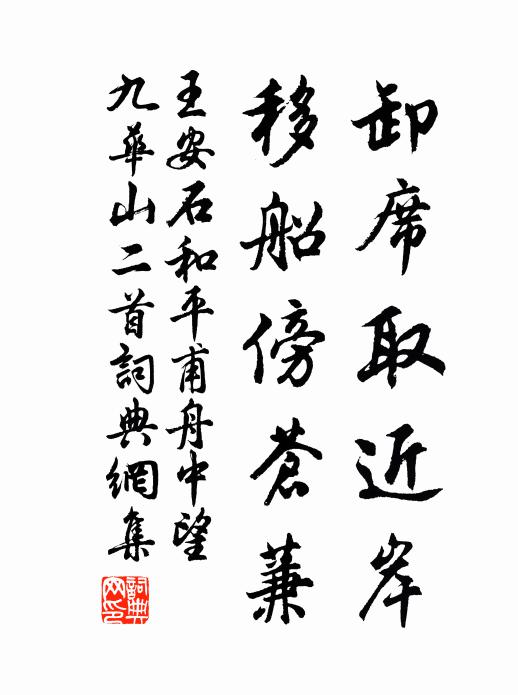 卸席取近岸
移船傍蒼蒹
王安石和平甫舟中望
九華山二首詞典網集
詞典網印